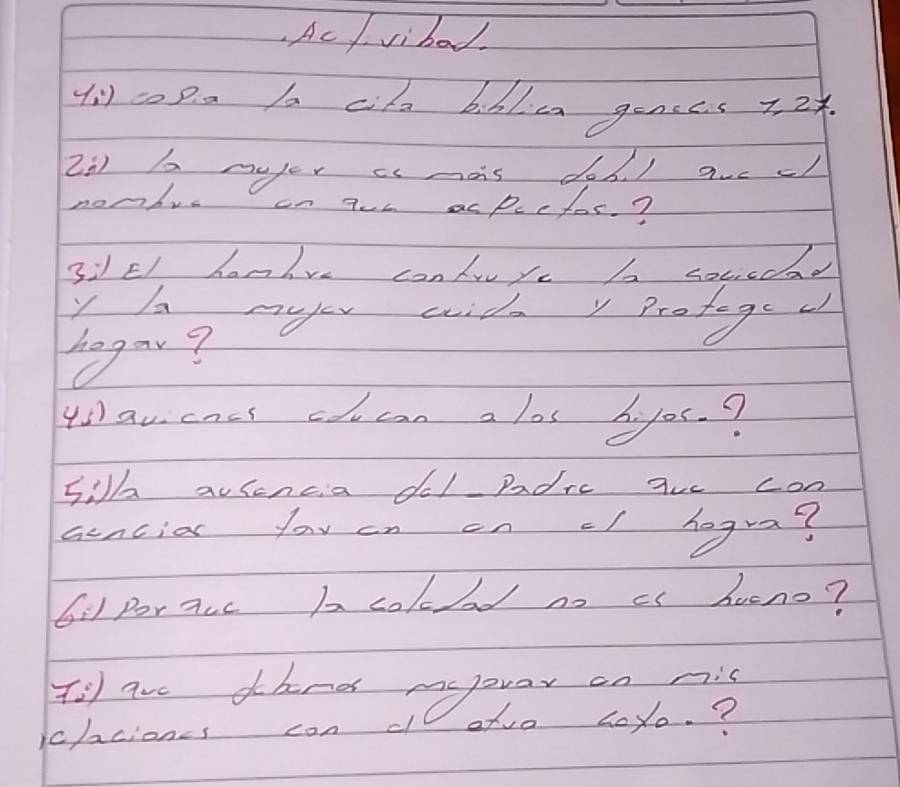 Actividad.
1:) copia la cita biblica genesis 1,27.
2:) la mujer es más debil que el
hombre en que aspectos.?
3:) El hombre contruye la sociedad
y la mujer cuida y Protege el
hogar?
4:) quienes educan a los hijos.?
5:) la ausencia del Padre que con
sencias traen en el hogra?
6:) Por que la soledad no es bueno?
7:) que debemos mejorar en mis
relaciones con el otro sexo.?